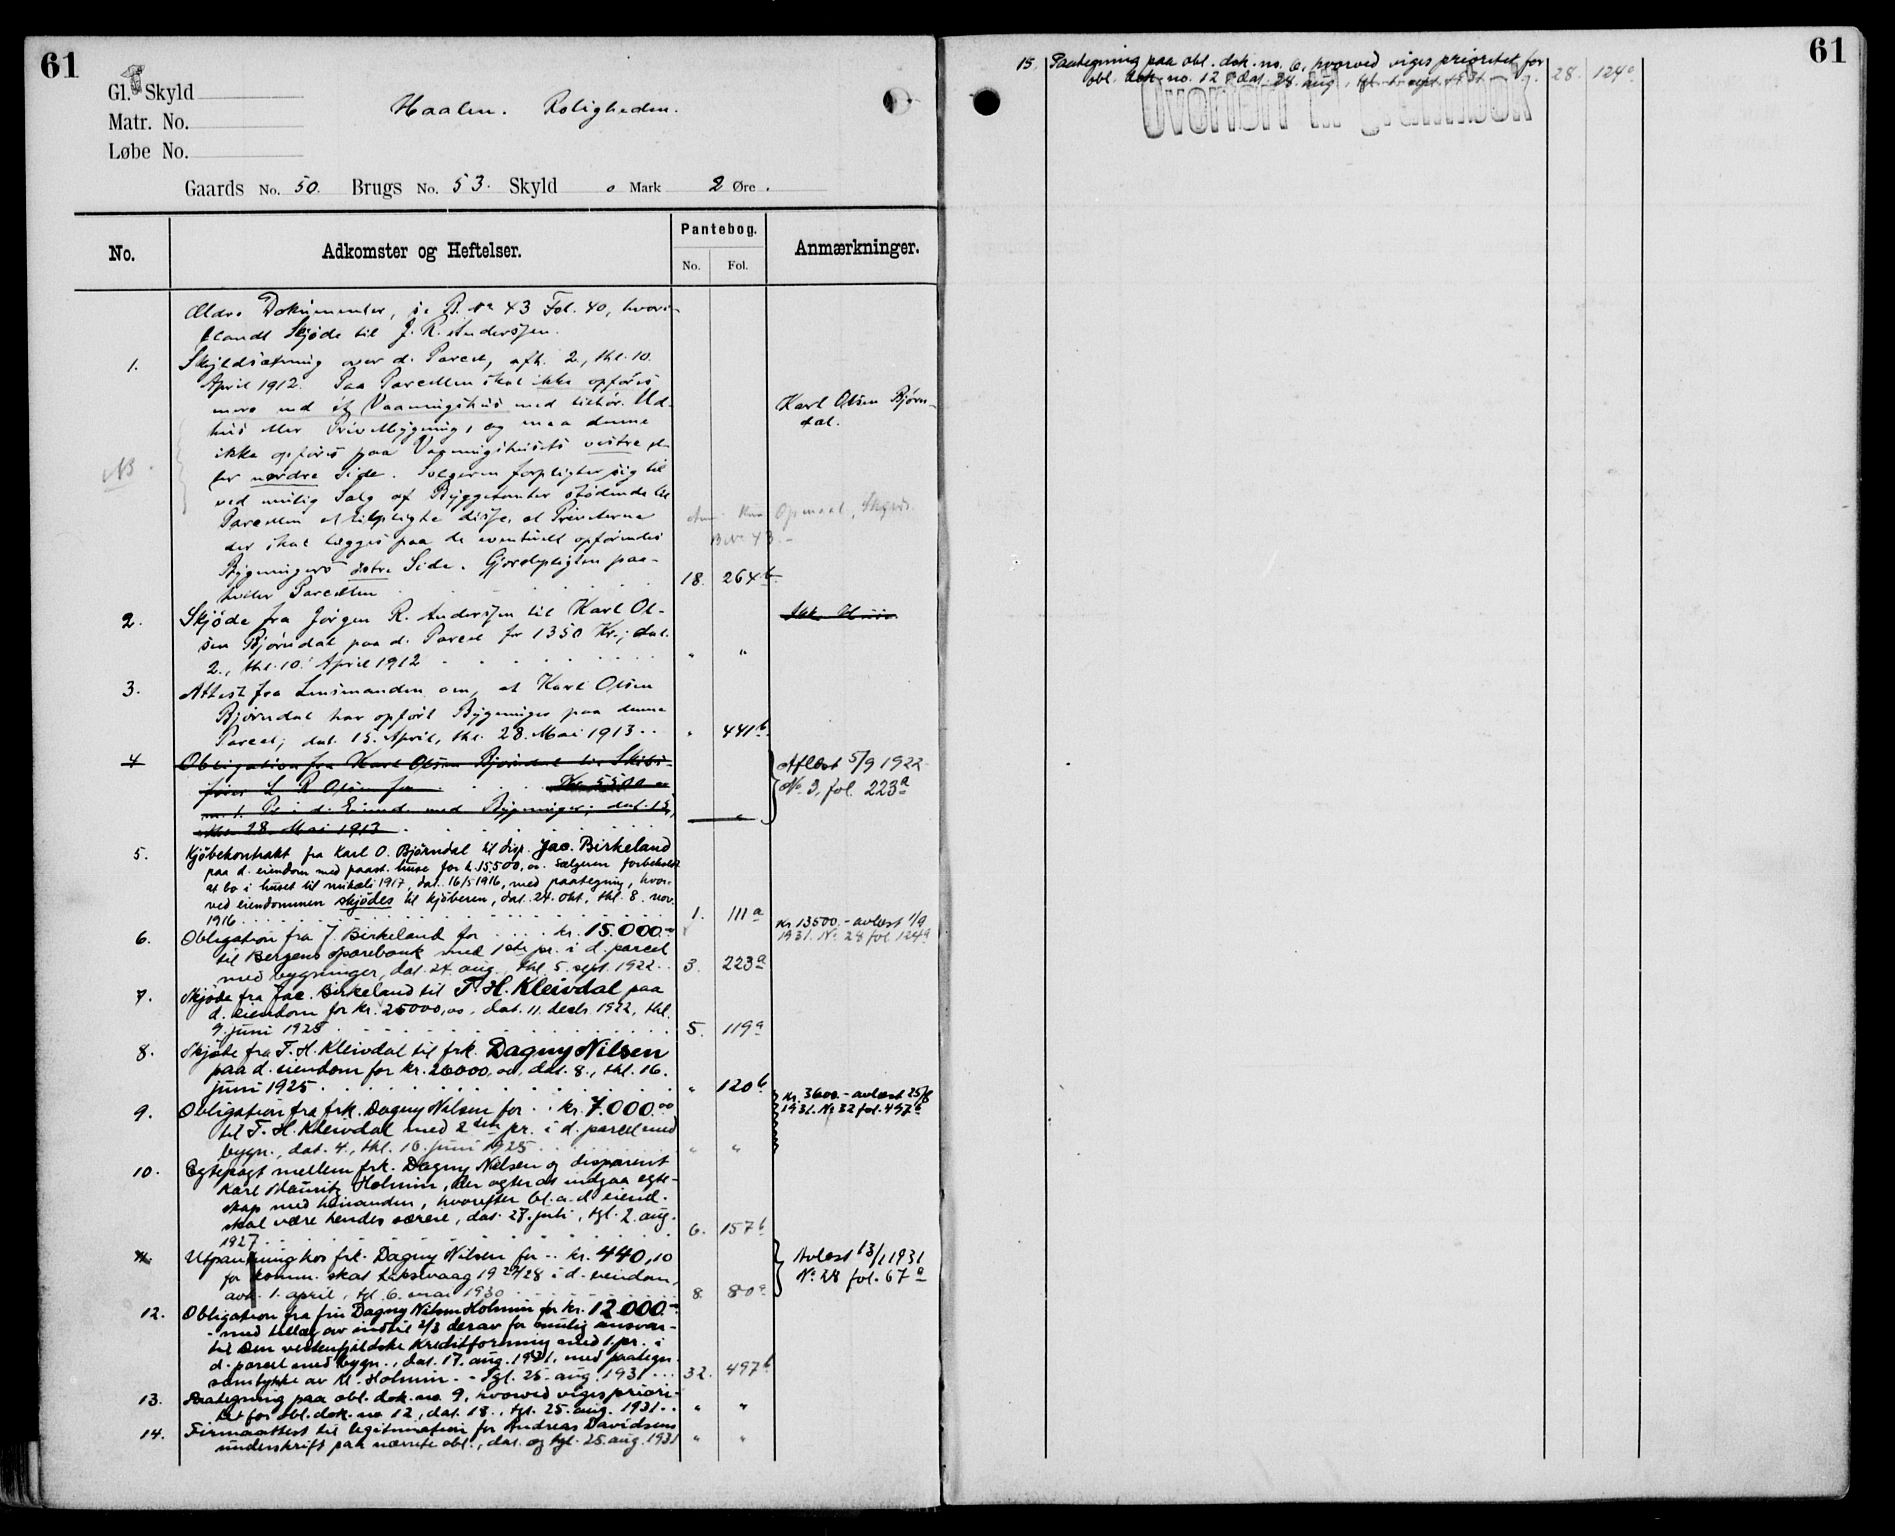 61
Gl. Skyld
Matr. No.
Løbe No.
Haalen. Roligheden.
Gaards No. 50. Brugs No. 53. Skyld 0 Mark 2 Øre.
No.
Adkomster og Heftelser.
Pantebog.
No. Fol.
Anmærkninger.
Ældre Dokumenter, se B. No 43 Fol. 40, hvori-
blandt Skjøde til J. R. Anderssen.
1. Skyldsætning over d. Parcel, afh. 2., thl. 10.
April 1912. Paa Parcellen skal ikke opføres
mere end ét Vaaningshus med tilhør. Ud-
hus eller Privetbygning, og maa denne
ikke opføres paa Vaaningshusets vestre el-
ler nordre Side. Sælgeren forpligter sig til
ved mulig Salg af Byggetomter stødende til
Parcellen at tilpligte disse, at Priveterne
der skal lægges paa de eventuelt opførendes
Bygningers østre Side. Gjerdepligten paa-
hviler Parcellen 18. 264b
Karl Olsen Bjørn-
dal.
NB.
Opmaal, Skyds.
B No 43.-
2. Skjøde fra Jørgen R. Anderssen til Karl Ol-
sen Bjørndal paa d. Parcel for 1350 Kr.; dat.
2., thl. 10. April 1912 " "
3. Attest fra Lensmanden om, at Karl Olsen
Bjørndal har opført Bygninger paa denne
Parcel; dat. 15. April, thl. 28. Mai 1913 .. " 441b
4 Obligation fra Karl Olsen Bjørndal til Skibs-
fører L R Olsen for Kr. 5500 m
m. 1. Pr i d. Eiend. med Bygninger; dat. 15,
thl. 28. Mai 1913
Aflæst 5/9 1922
No. 3, fol. 223a
5. Kjøbekontrakt fra Karl O. Bjørndal til disp. Jac. Birkeland
paa d. eiendom med paast. huse for k. 15500,oo. Sælgeren forbeholdt
at bo i huset til mikæli 1917, dat. 16/5 1916, med paategning, hvor-
ved eiendommen skjødes til kjøberen, dat. 24. okt., thl. 8. nov.
1916 1. 111a
6. Obligation fra J. Birkeland for kr. 15.000.-
til Bergens Sparebank med 1ste pr. i d. parcel
med bygninger, dat. 24. aug., thl. 5. sept. 1922 .. 3. 223a
Kr. 13500.- avlæst 1/9
1931. No 28 fol 124a
7. Skjøde fra Jac. Birkeland til T. H. Kleivdal paa
d. eiendom for kr. 25000,oo, dat. 11. decbr. 1922, thl.
9. juni 1925 5. 119a
8. Skjøte fra T. H. Kleivdal til frk. Dagny Nilsen
paa d. eiendom for kr. 20000,oo, dat. 8., thl. 16.
juni 1925 " 120b
9. Obligation fra frk. Dagny Nilsen for .. kr. 7.000.00
til T. H. Kleivdal med 2den pr. i d. parcel med
bygn., dat. 4., thl. 16. juni 1925 " "
Kr. 3600.- avlæst 25/8
1931. No 32 fol. 497b
10. Egtepagt mellem frk. Dagny Nilsen og disponent
Karl Mauritz Holmin, der agter at indgaa egte-
skap med hinanden, hvorefter bl.a. d. eiend.
skal være hendes særeie, dat. 27. juli, tgl. 2. aug.
1927 6. 157b
11. Utpantning hos frk. Dagny Nilsen for .. kr. 440,10
for komm. skat Laksevaag 1927/28 i d. eiendom,
avh. 1. april, tgl. 6. mai 1930 8. 80a
Avlæst 13/1 1931
No 28 fol. 67a
12. Obligation fra fru Dagny Nilsen Holmin for kr. 12.000.-
- med tillæg av indtil 2/3 derav for mulig ansvar -
til Den vestenfjeldske Kreditforening med 1. pr. i
d. parcel med bygn., dat. 17. aug. 1931, med paategn.
samtykke av K. Holmin - tgl. 25. aug. 1931 ... 32. 497b
13. Paategning paa obl. dok. no. 9, hvorved viges priori-
tet for obl. dok. no 12, dat. 18., tgl. 25. aug. 1931 .. " "
14. Firmaattest til legitimation for Andreas Davidsens
underskrift paa nævnte obl., dat. og tgl. 25. aug. 1931 " "
61
15. Paategning paa obl. dok. no. 6, hvorved viges prioritet for
obl. dok. no. 12, dat. 28. aug., tgl. 1. sept. 1931 28. 124a
Overført til grunnbok